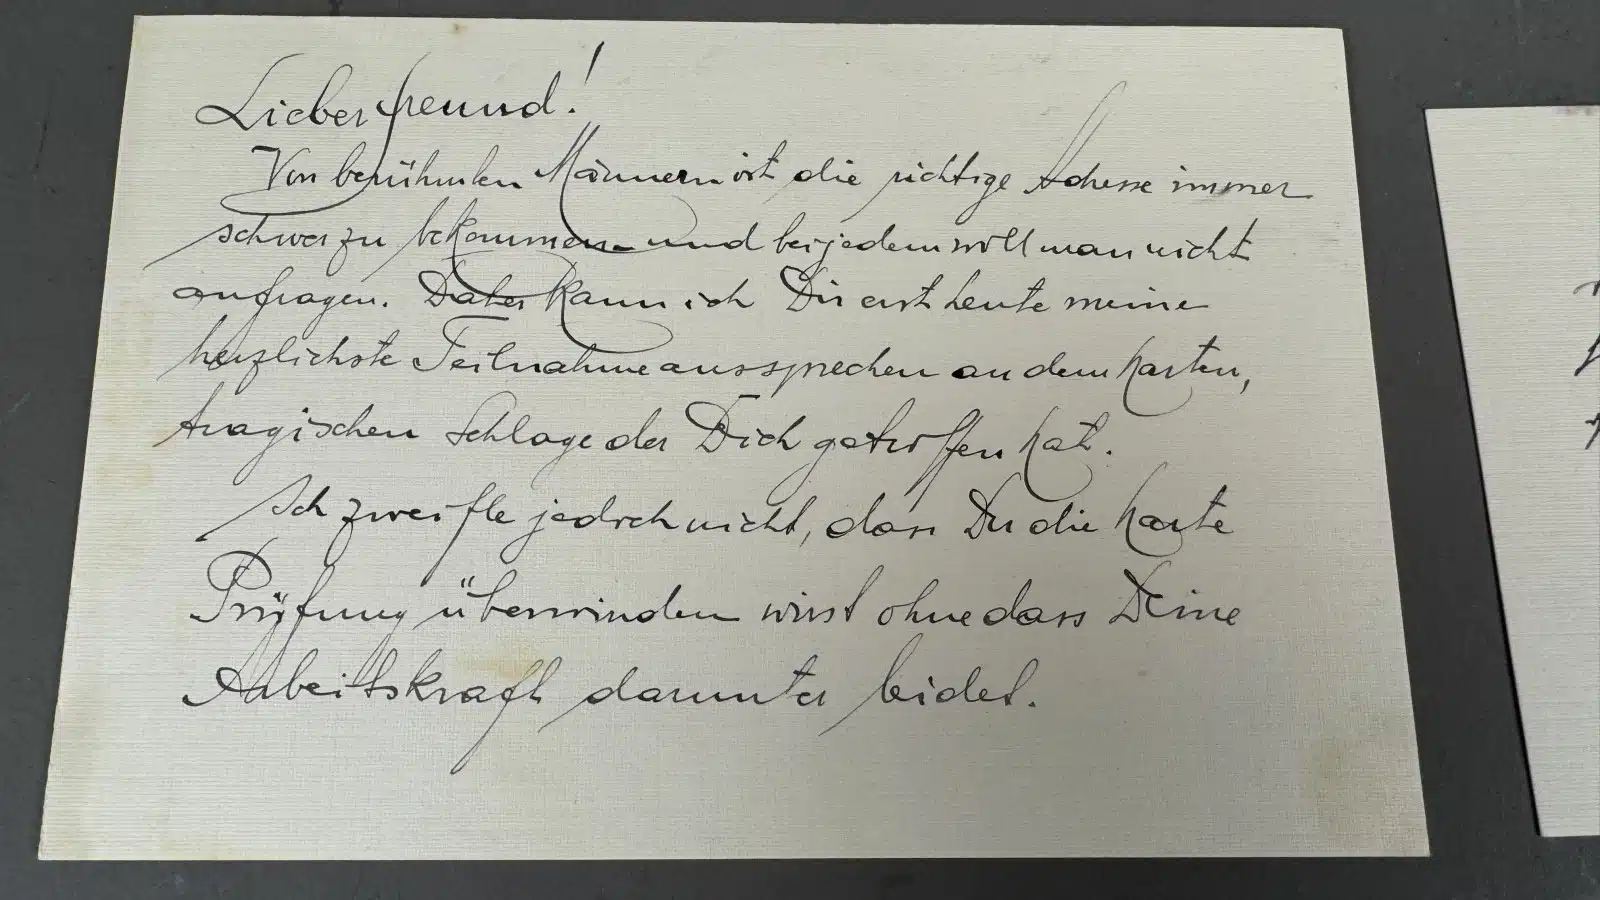 Lieber Freund!
Von berühmten Männern ist die richtige Adresse immer
schwer zu bekommen und bei jedem will man nicht
anfragen. Daher kann ich Dir erst heute meine
herzlichste Teilnahme aussprechen an dem harten,
tragischen Schlage der Dich getroffen hat.
Ich zweifle jedoch nicht, dass Du die harte
Prüfung überwinden wirst ohne dass Deine
Arbeitskraft darunter leidet.